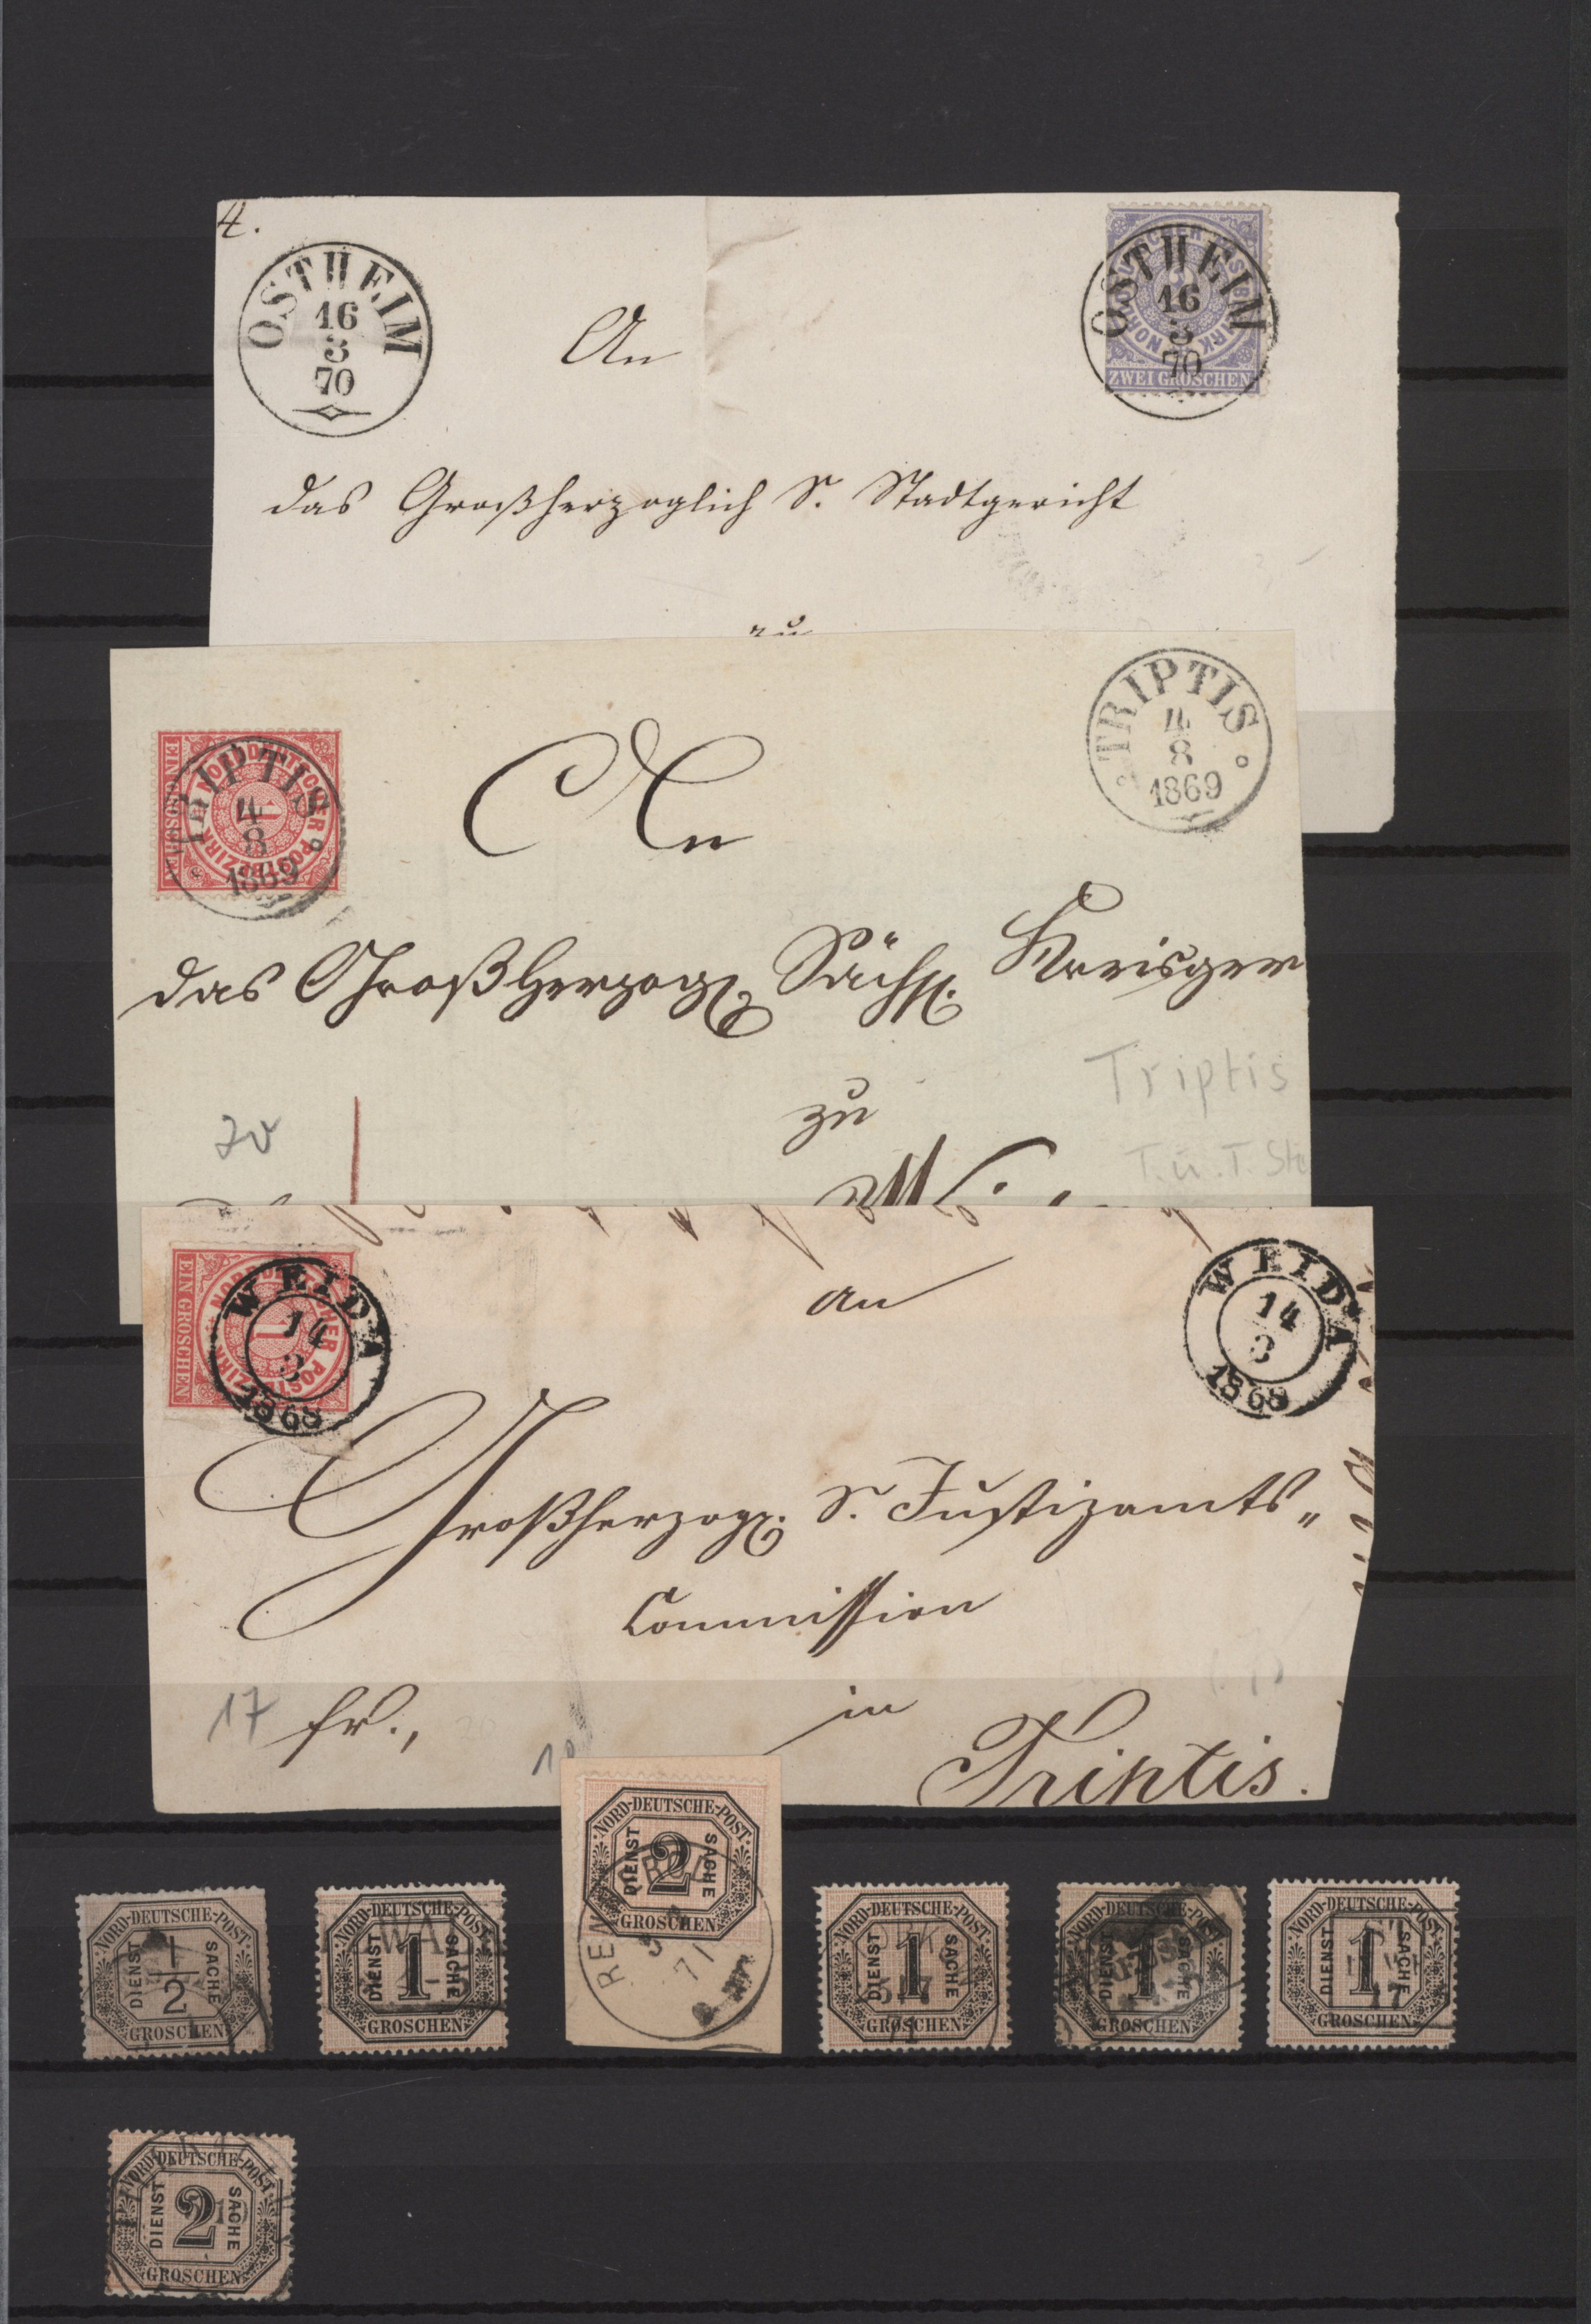 4.
OSTHEIM
16
3
70
OSTHEIM
16
3
70
ZWEI GROSCHEN
An
das Großherzoglich S. Stadtgericht
zu
NORDDEUTSCHER POSTBEZIRK
EIN GROSCHEN
1
TRIPTIS
4
8
1869
TRIPTIS
4
8
1869
An
das Großherzogl. Sächs. Kreisger
zu
Triptis
T. u. T. Ste
NORDDEUTSCHER POSTBEZIRK
EIN GROSCHEN
1
WEIDA
14
3
1868
WEIDA
14
3
1868
An
Großherzogl. S. Justizamts„
Commission
17 fr.,
in
Triptis.
NORD-DEUTSCHE-POST
DIENST 2 SACHE
GROSCHEN
71
NORD-DEUTSCHE-POST
DIENST 1/2 SACHE
GROSCHEN
NORD-DEUTSCHE-POST
DIENST 1 SACHE
GROSCHEN
NORD-DEUTSCHE-POST
DIENST 1 SACHE
GROSCHEN
NORD-DEUTSCHE-POST
DIENST 1 SACHE
GROSCHEN
NORD-DEUTSCHE-POST
DIENST 1 SACHE
GROSCHEN
NORD-DEUTSCHE-POST
DIENST 2 SACHE
GROSCHEN